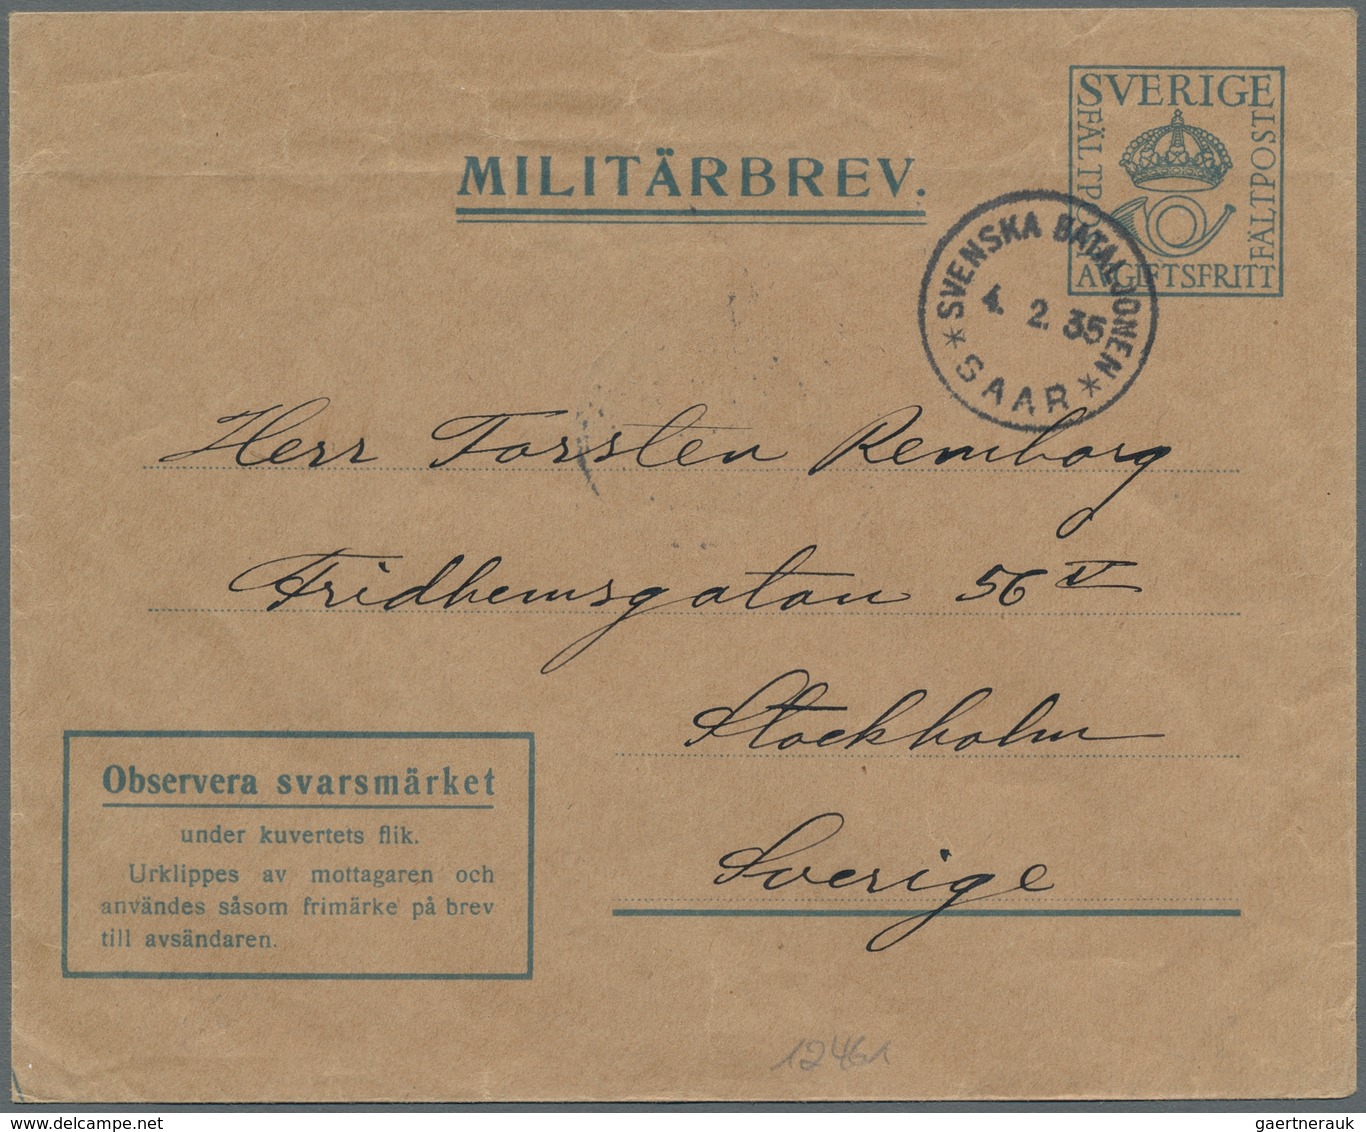 SVERIGE
FÄLTPOST
FÄLTPOST
AVGIFTSFRITT
MILITÄRBREV.
* SVENSKA BATALJONEN *
4. 2. 35
SAAR
Herr Torsten Remborg
Fridhemsgatan 56 V
Stockholm
Sverige
Observera svarsmärket
under kuvertets flik.
Urklippes av mottagaren och
användes såsom frimärke på brev
till avsändaren.
12461
gaertnerauk @ delcampe.net